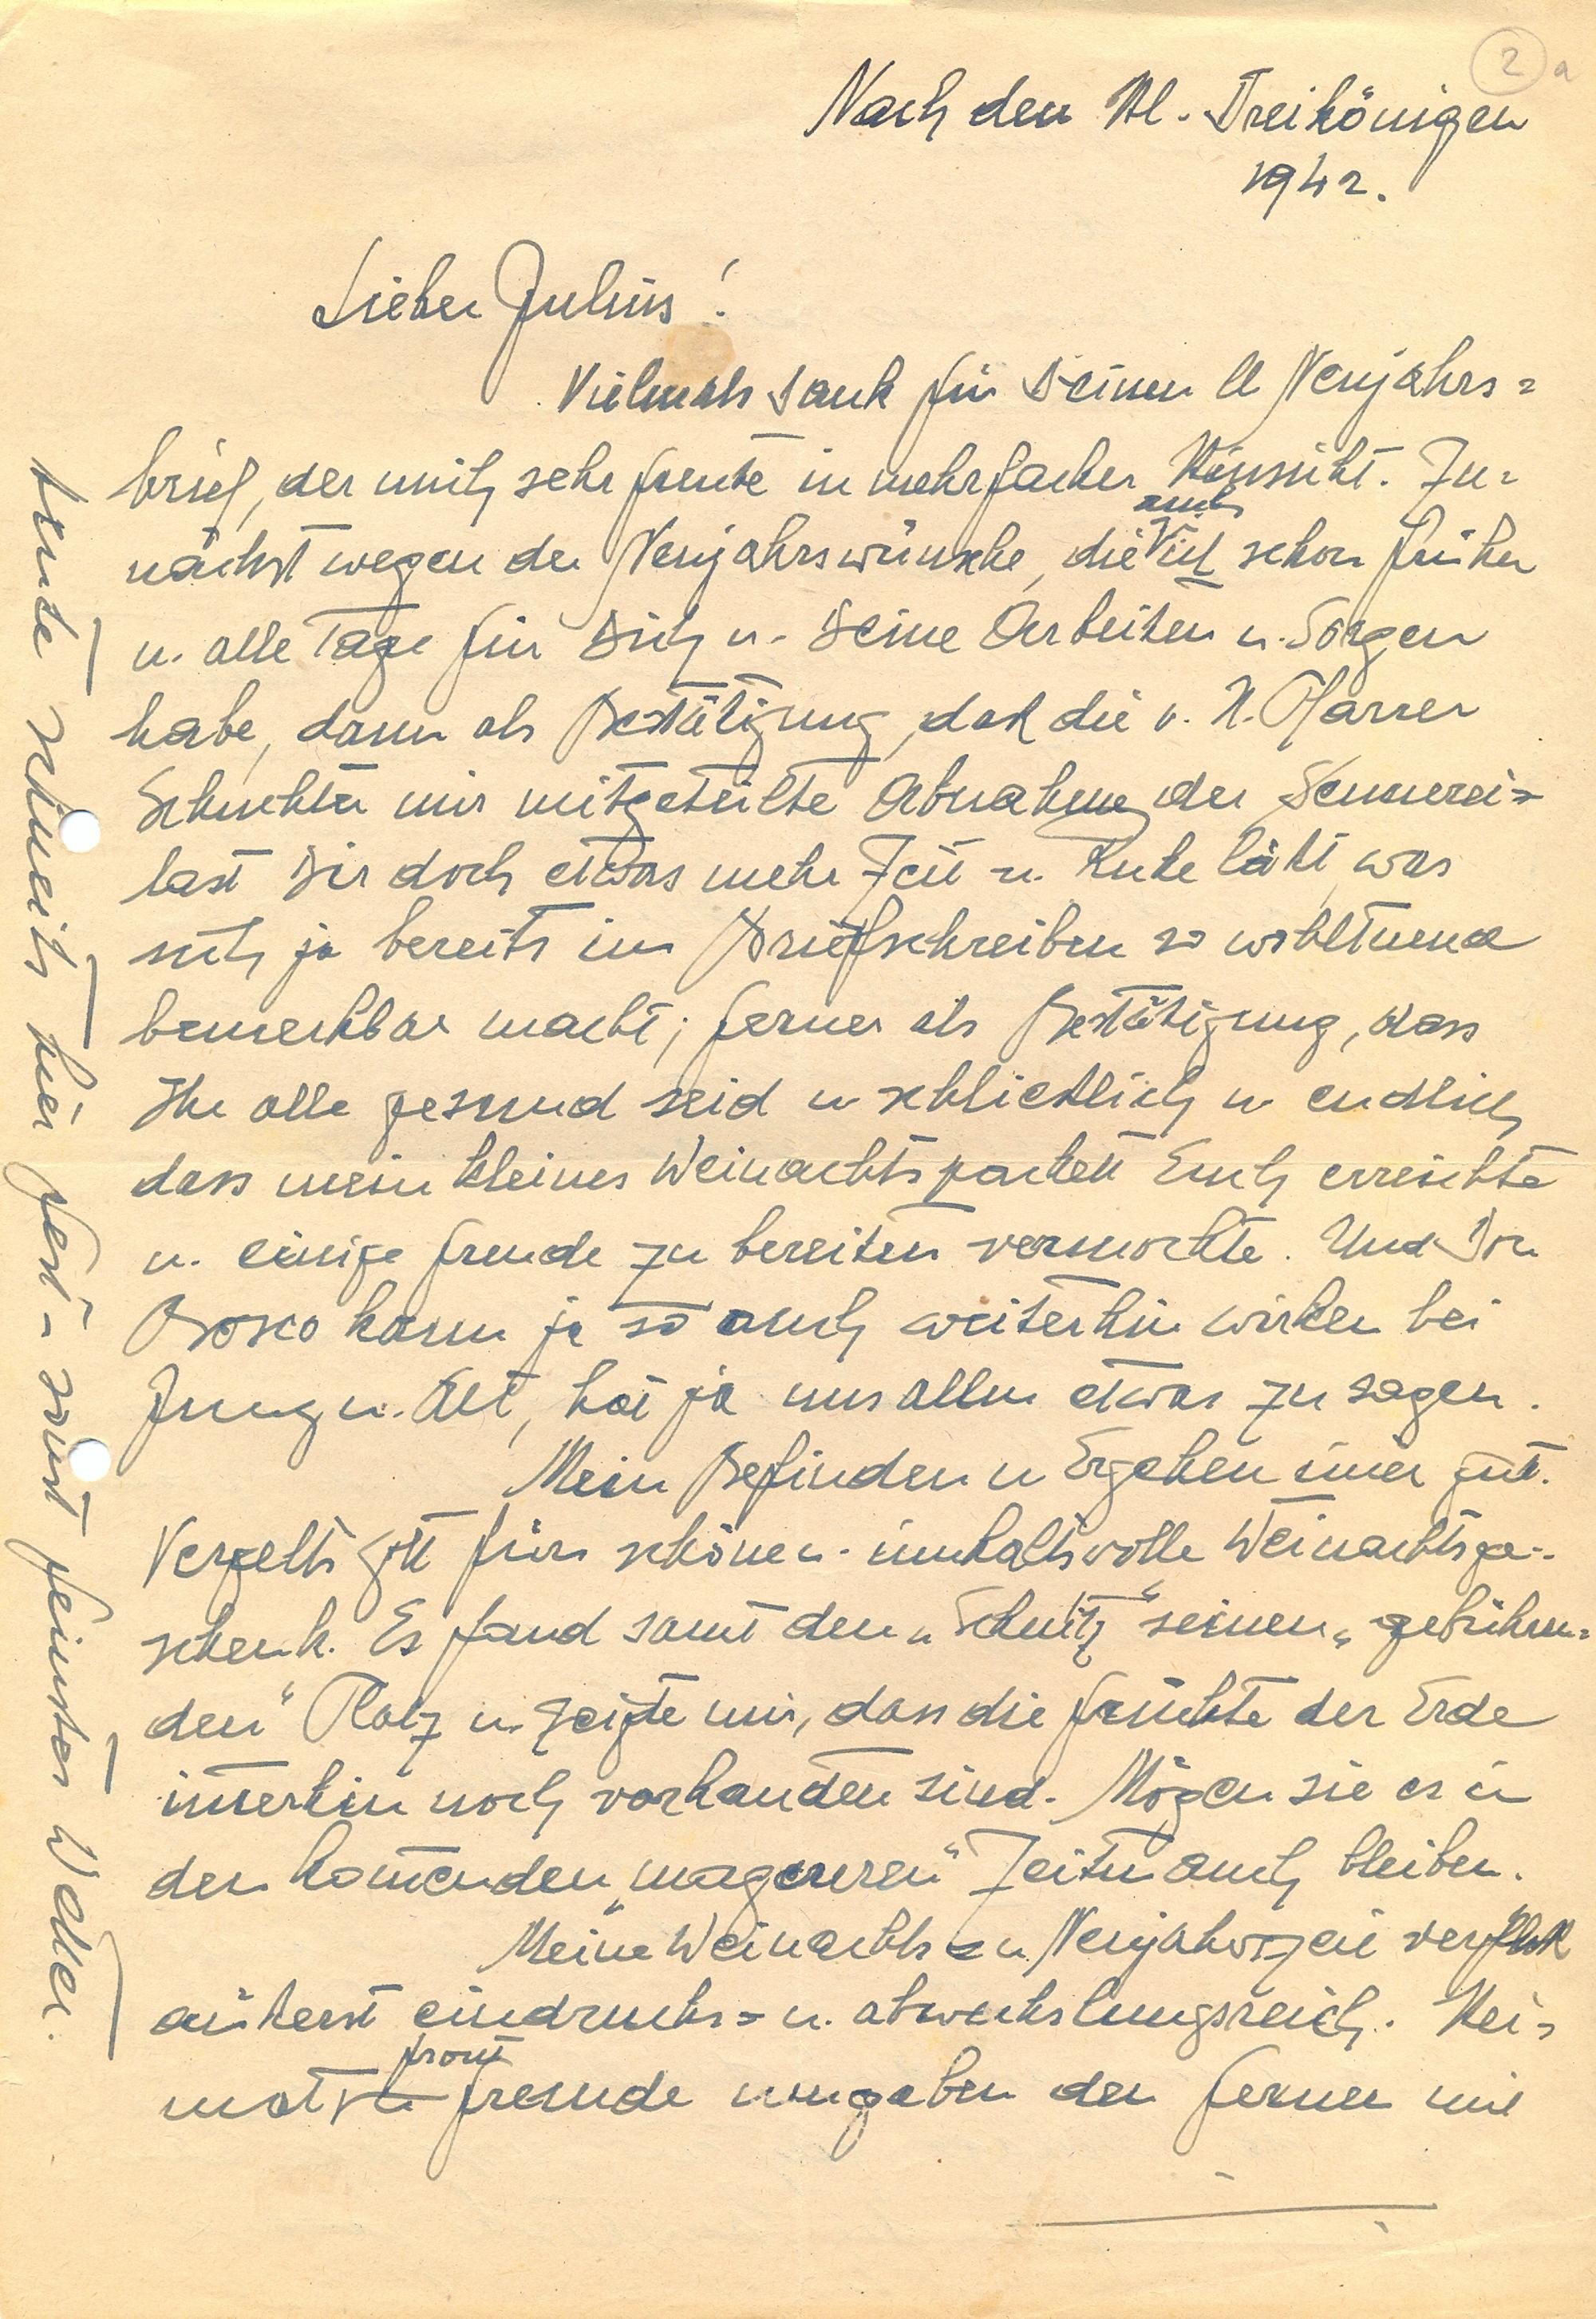 2 a
Nach den Hl. Dreikönigen
1942.
Lieber Julius!
Vielmals Dank für Deinen ll Neujahrs=
brief, der mich sehr freute in mehrfacher Hinsicht. Zu=
nächst wegen der Neujahrswünsche, die auch schon früher
u. alle Tage für Dich u. Deine Arbeiten u. Sorgen
habe, dann als Bestätigung, daß die v. H. Pfarrer
mir mitgeteilte Abnahme der Sennerei=
last Dir doch etwas mehr Zeit u. Ruhe läßt, was
sich ja bereits im Briefschreiben so wohltuend
bemerkbar macht; ferner als Bestätigung, dass
Ihr alle gesund seid u schließlich u endlich
dass mein kleines Weinachtspacketl Euch erreichte
u. einige Freude zu bereiten vermochte. Und Don
Bosco kann ja so auch weiterhin wirken bei
Jung u. Alt, hat ja uns allen etwas zu sagen.
Mein Befinden u Ergehen imer gut.
Vergelts Gott fürs schöne u. innhaltsvolle Weinachtsge-
schenk. Es fand samt den „Schnitz“ seinen „gebühren=
den“ Platz u. zeigte mir, dass die Früchte der Erde
imerhin noch vorhanden sind. Mögen sie es in
den komenden „magereren“ Zeiten auch bleiben.
Meine Weinachts= u Neujahrszeit verfloß
äußerst eindrucks= u. abwechslungsreich. Hei=
mat front freude umgaben den fernen und
hier fest – sonst feinstes Wetter.